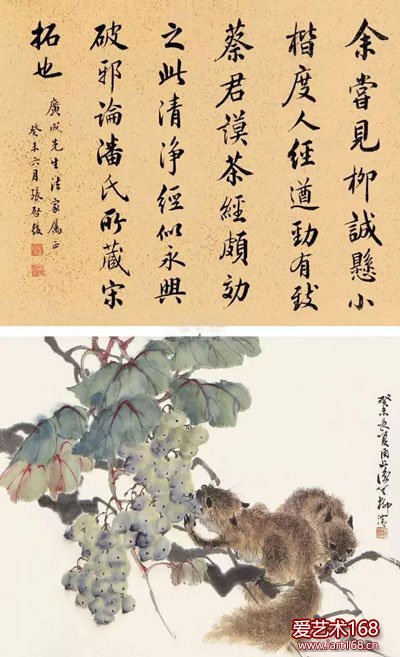 余嘗見柳誠懸小
楷度人經遒勁有致
蔡君謨茶經頗効
之此清净經似永興
破邪論潘氏所藏宋
拓也
廣成先生法家属正
癸未六月張啓後
癸未長夏
爱艺术168
www.1art168.cn